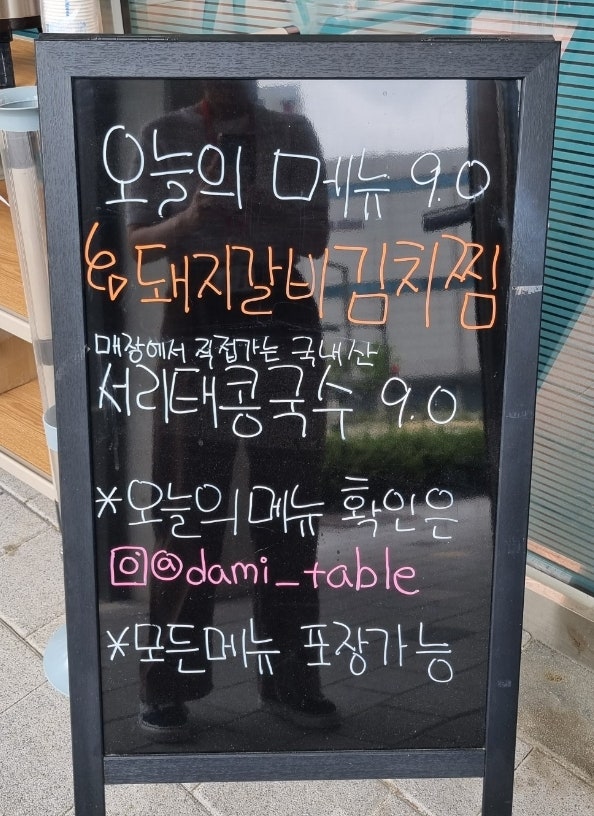 오늘의 메뉴 9.0
돼지갈비김치찜
매장에서 직접가는 국내산
서리태콩국수 9.0
*오늘의메뉴 확인은
@dami_table
*모든메뉴 포장가능